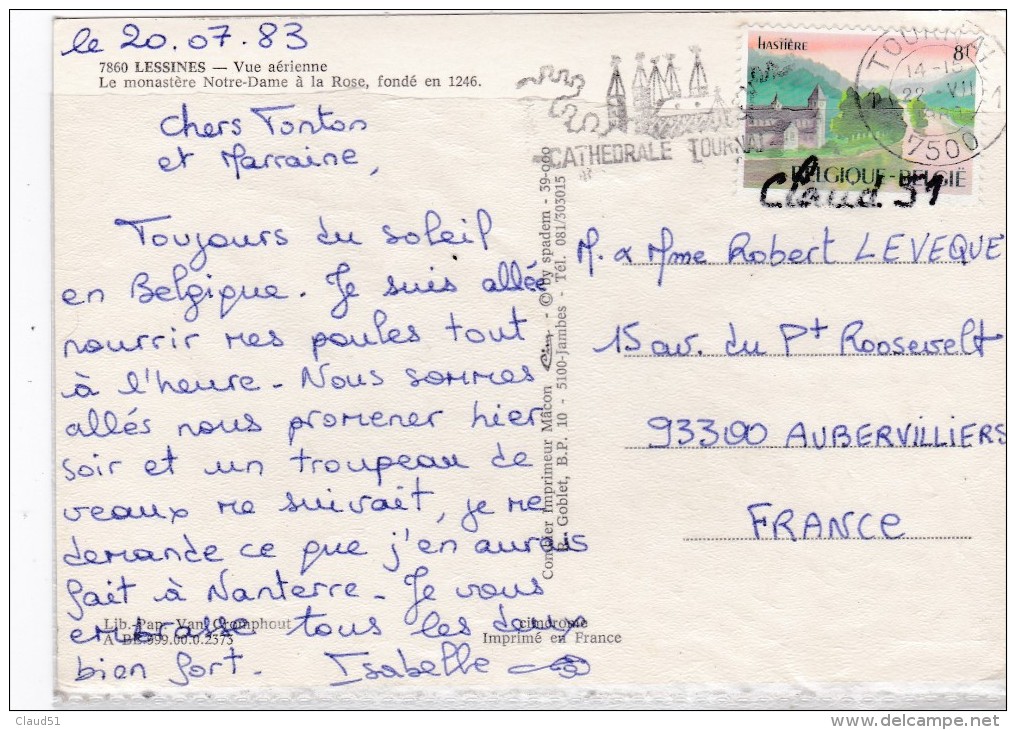 le 20.07.83
7860 LESSINES — Vue aérienne
Le monastère Notre-Dame à la Rose, fondé en 1246.
chers Tonton
et Marraine,
Toujours du soleil
en Belgique. Je suis allée
nourrir mes poules tout
à l'heure. Nous sommes
allés nous promener hier
soir et un troupeau de
veaux me suivait, je me
demande ce que j'en aurais
fait à Nanterre. Je vous
embrasse tous les deux
bien fort. Isabelle
Lib.-Pap. Van Cromphout
A BE.999.00.0.2373
cimdrome
Imprimé en France
Combier Imprimeur Mâcon Cim - © by spadem - 39-000
Goblet, B.P. 10 - 5100-Jambes - Tél. 081/303015
CATHEDRALE TOURNAI
HASTIÈRE 8F
BELGIQUE-BELGIË
TOURNAI
14-15
22 VII
1
7500
Claud 51
M. & Mme Robert LEVEQUE
15 av. du Pt Roosevelt
93300 AUBERVILLIERS
FRANCE
Claud51
delcampe.net